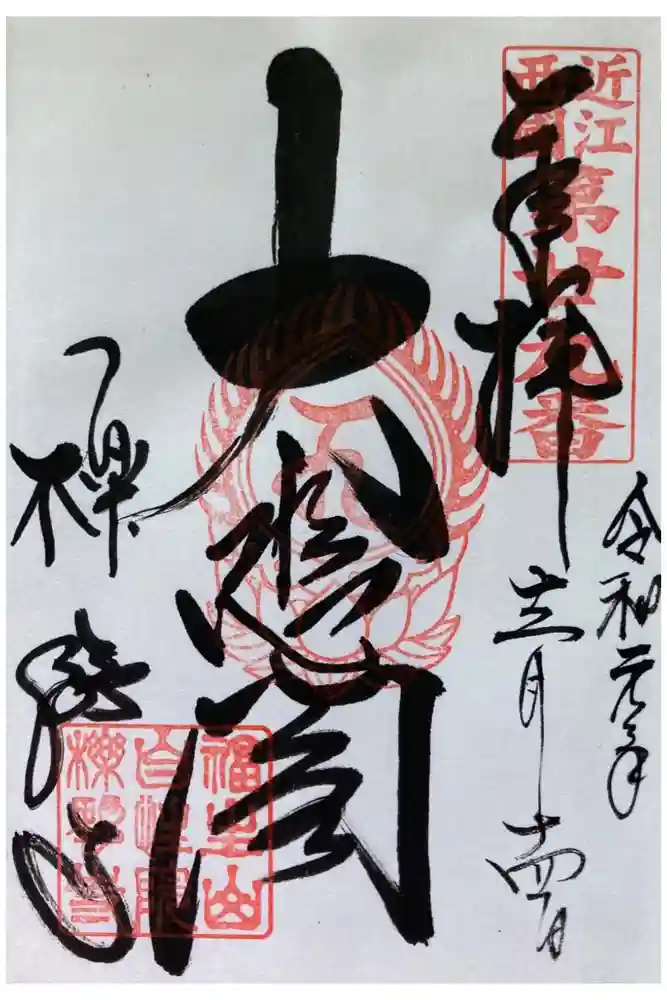 近江
西國
第廿九番
奉拝
令和元年
十二月十四日
大悲閣
福生山
自性院
櫟野寺
櫟野寺